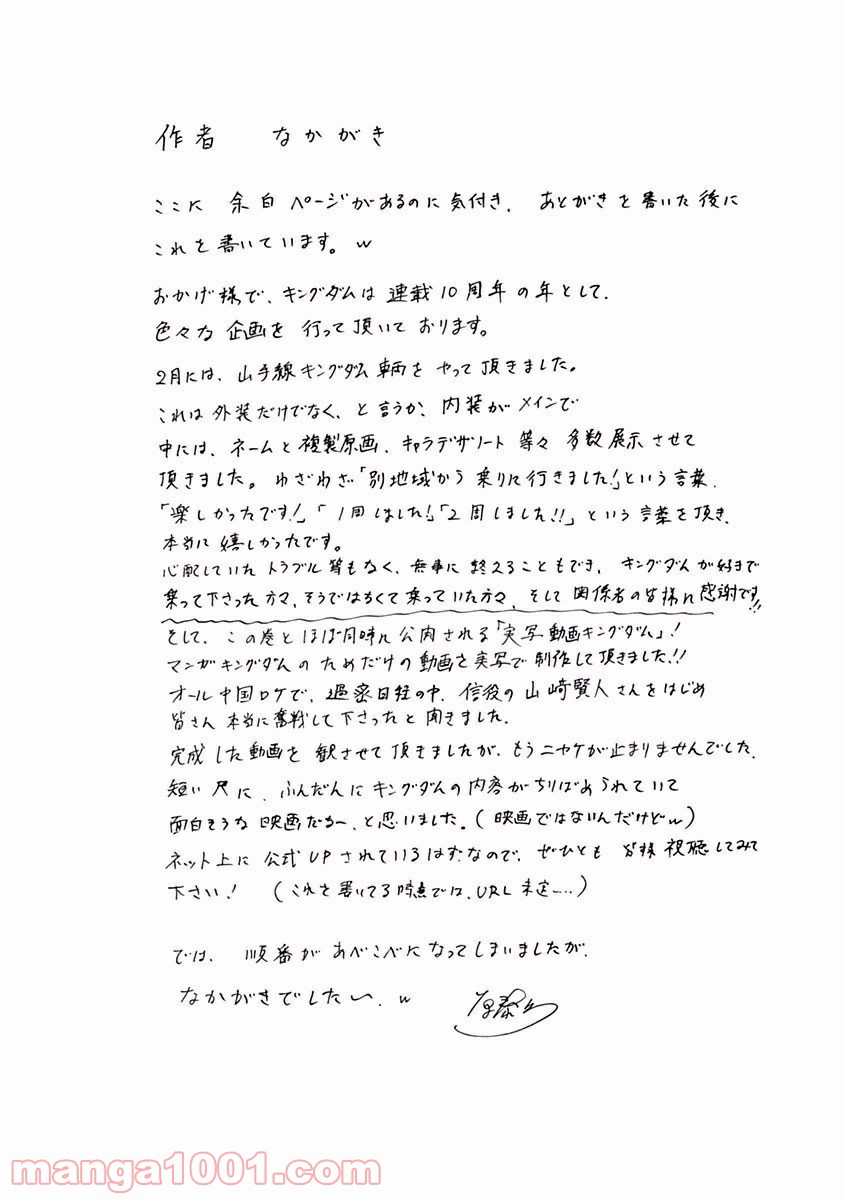 作者　なかがき
ここに 余白ページがあるのに気付き、あとがきを書いた後に
これを書いています。w
おかげ様で、キングダムは 連載10周年の年として、
色々な 企画を 行って頂いております。
2月には、山手線キングダム車両を やって頂きました。
これは 外装だけでなく、と言うか、内装がメインで
中には、ネームと複製原画、キャラデザリート 等々 多数展示させて
頂きました。わざわざ「別地域から 乗りに行きました!」という言葉、
「楽しかったです!」「1周しました!」「2周しました!!」という言葉を頂き、
本当に 嬉しかったです。
心配していた トラブル等もなく、無事に 終えることもでき、キングダムが好きで
乗って下さった方々、そうではなくて乗っていた方々、そして 関係者の皆様に感謝です!!
そして、この巻とほぼ同時に公開される「実写動画キングダム」!
マンガキングダムのためだけの動画を実写で制作して頂きました!!
オール中国ロケで、過密日程の中、信役の山﨑賢人さんをはじめ
皆さん 本当に奮戦して下さったと聞きました。
完成した動画を 観させて頂きましたが、もうニヤケが止まりませんでした。
短い尺に、ふんだんにキングダムの内容がちりばめられていて
面白そうな映画だなー、と思いました。(映画ではないんだけどw)
ネット上に 公式UPされているはずなので、ぜひとも 皆様 視聴してみて
下さい! (これを書いてる時点では、URL未定……)
では、順番が あべこべになってしまいましたが、
なかがきでしたー。w 原泰久
manga1001.com